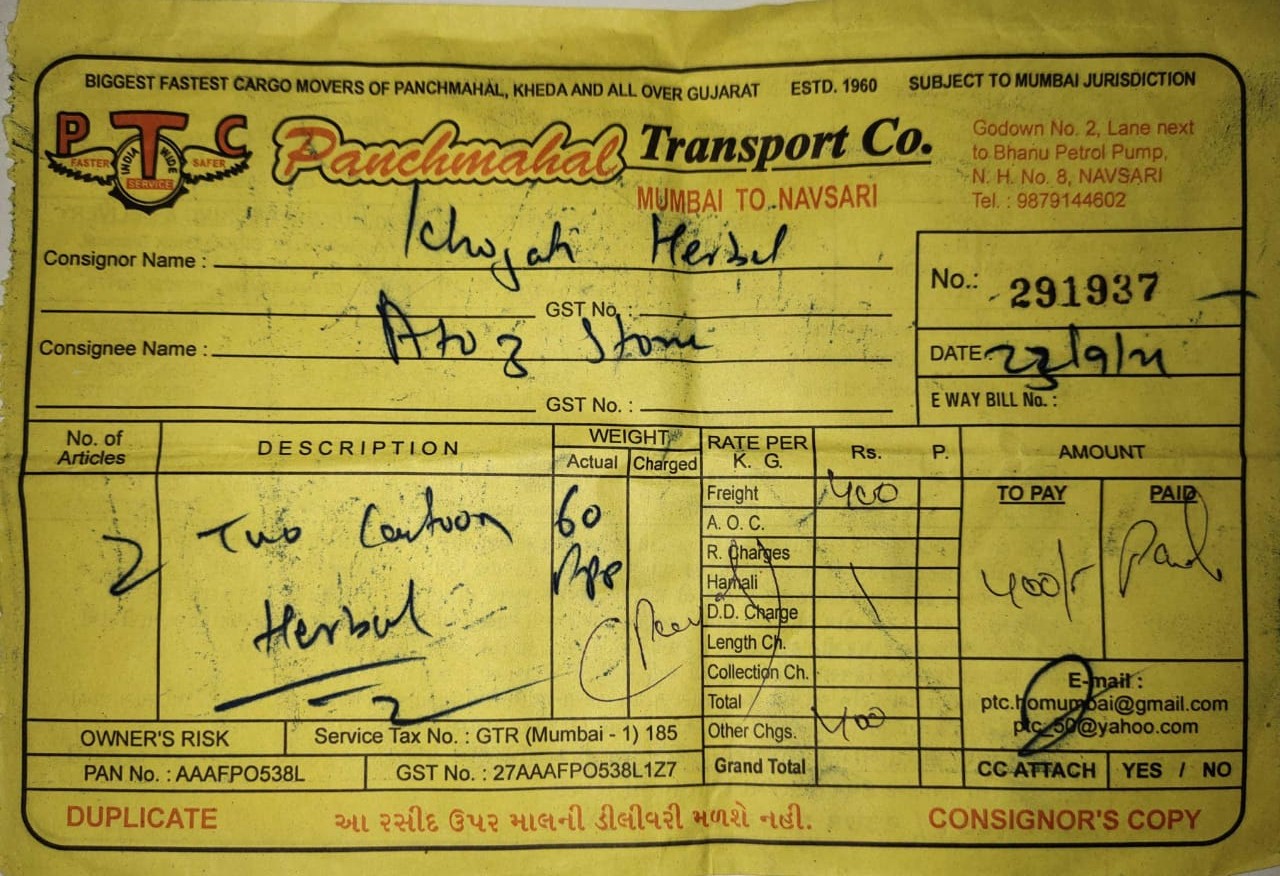 BIGGEST FASTEST CARGO MOVERS OF PANCHMAHAL, KHEDA AND ALL OVER GUJARAT ESTD. 1960 SUBJECT TO MUMBAI JURISDICTION
P T C
FASTER INDIA WIDE SAFER
SERVICE
Panchmahal Transport Co.
MUMBAI TO NAVSARI
Godown No. 2, Lane next
to Bhanu Petrol Pump,
N. H. No. 8, NAVSARI
Tel. : 9879144602
Consignor Name : Herbal
GST No. :
Consignee Name : A to Z
GST No. :
No.: 291937
DATE
E WAY BILL No. :
No. of Articles DESCRIPTION WEIGHT Actual Charged RATE PER K. G. Rs. P. AMOUNT
TO PAY PAID
2 Two Cartoon 60
Herbul
Freight 400
A. O. C.
R. Charges
Hamali
D.D. Charge
Length Ch.
Collection Ch.
Total
Other Chgs. 400
Grand Total
400/- Paid
E-mail :
ptc.homumbai@gmail.com
ptc_50@yahoo.com
CC ATTACH YES / NO
OWNER'S RISK Service Tax No. : GTR (Mumbai - 1) 185
PAN No. : AAAFPO538L GST No. : 27AAAFPO538L1Z7
DUPLICATE આ રસીદ ઉપર માલની ડીલીવરી મળશે નહી. CONSIGNOR'S COPY